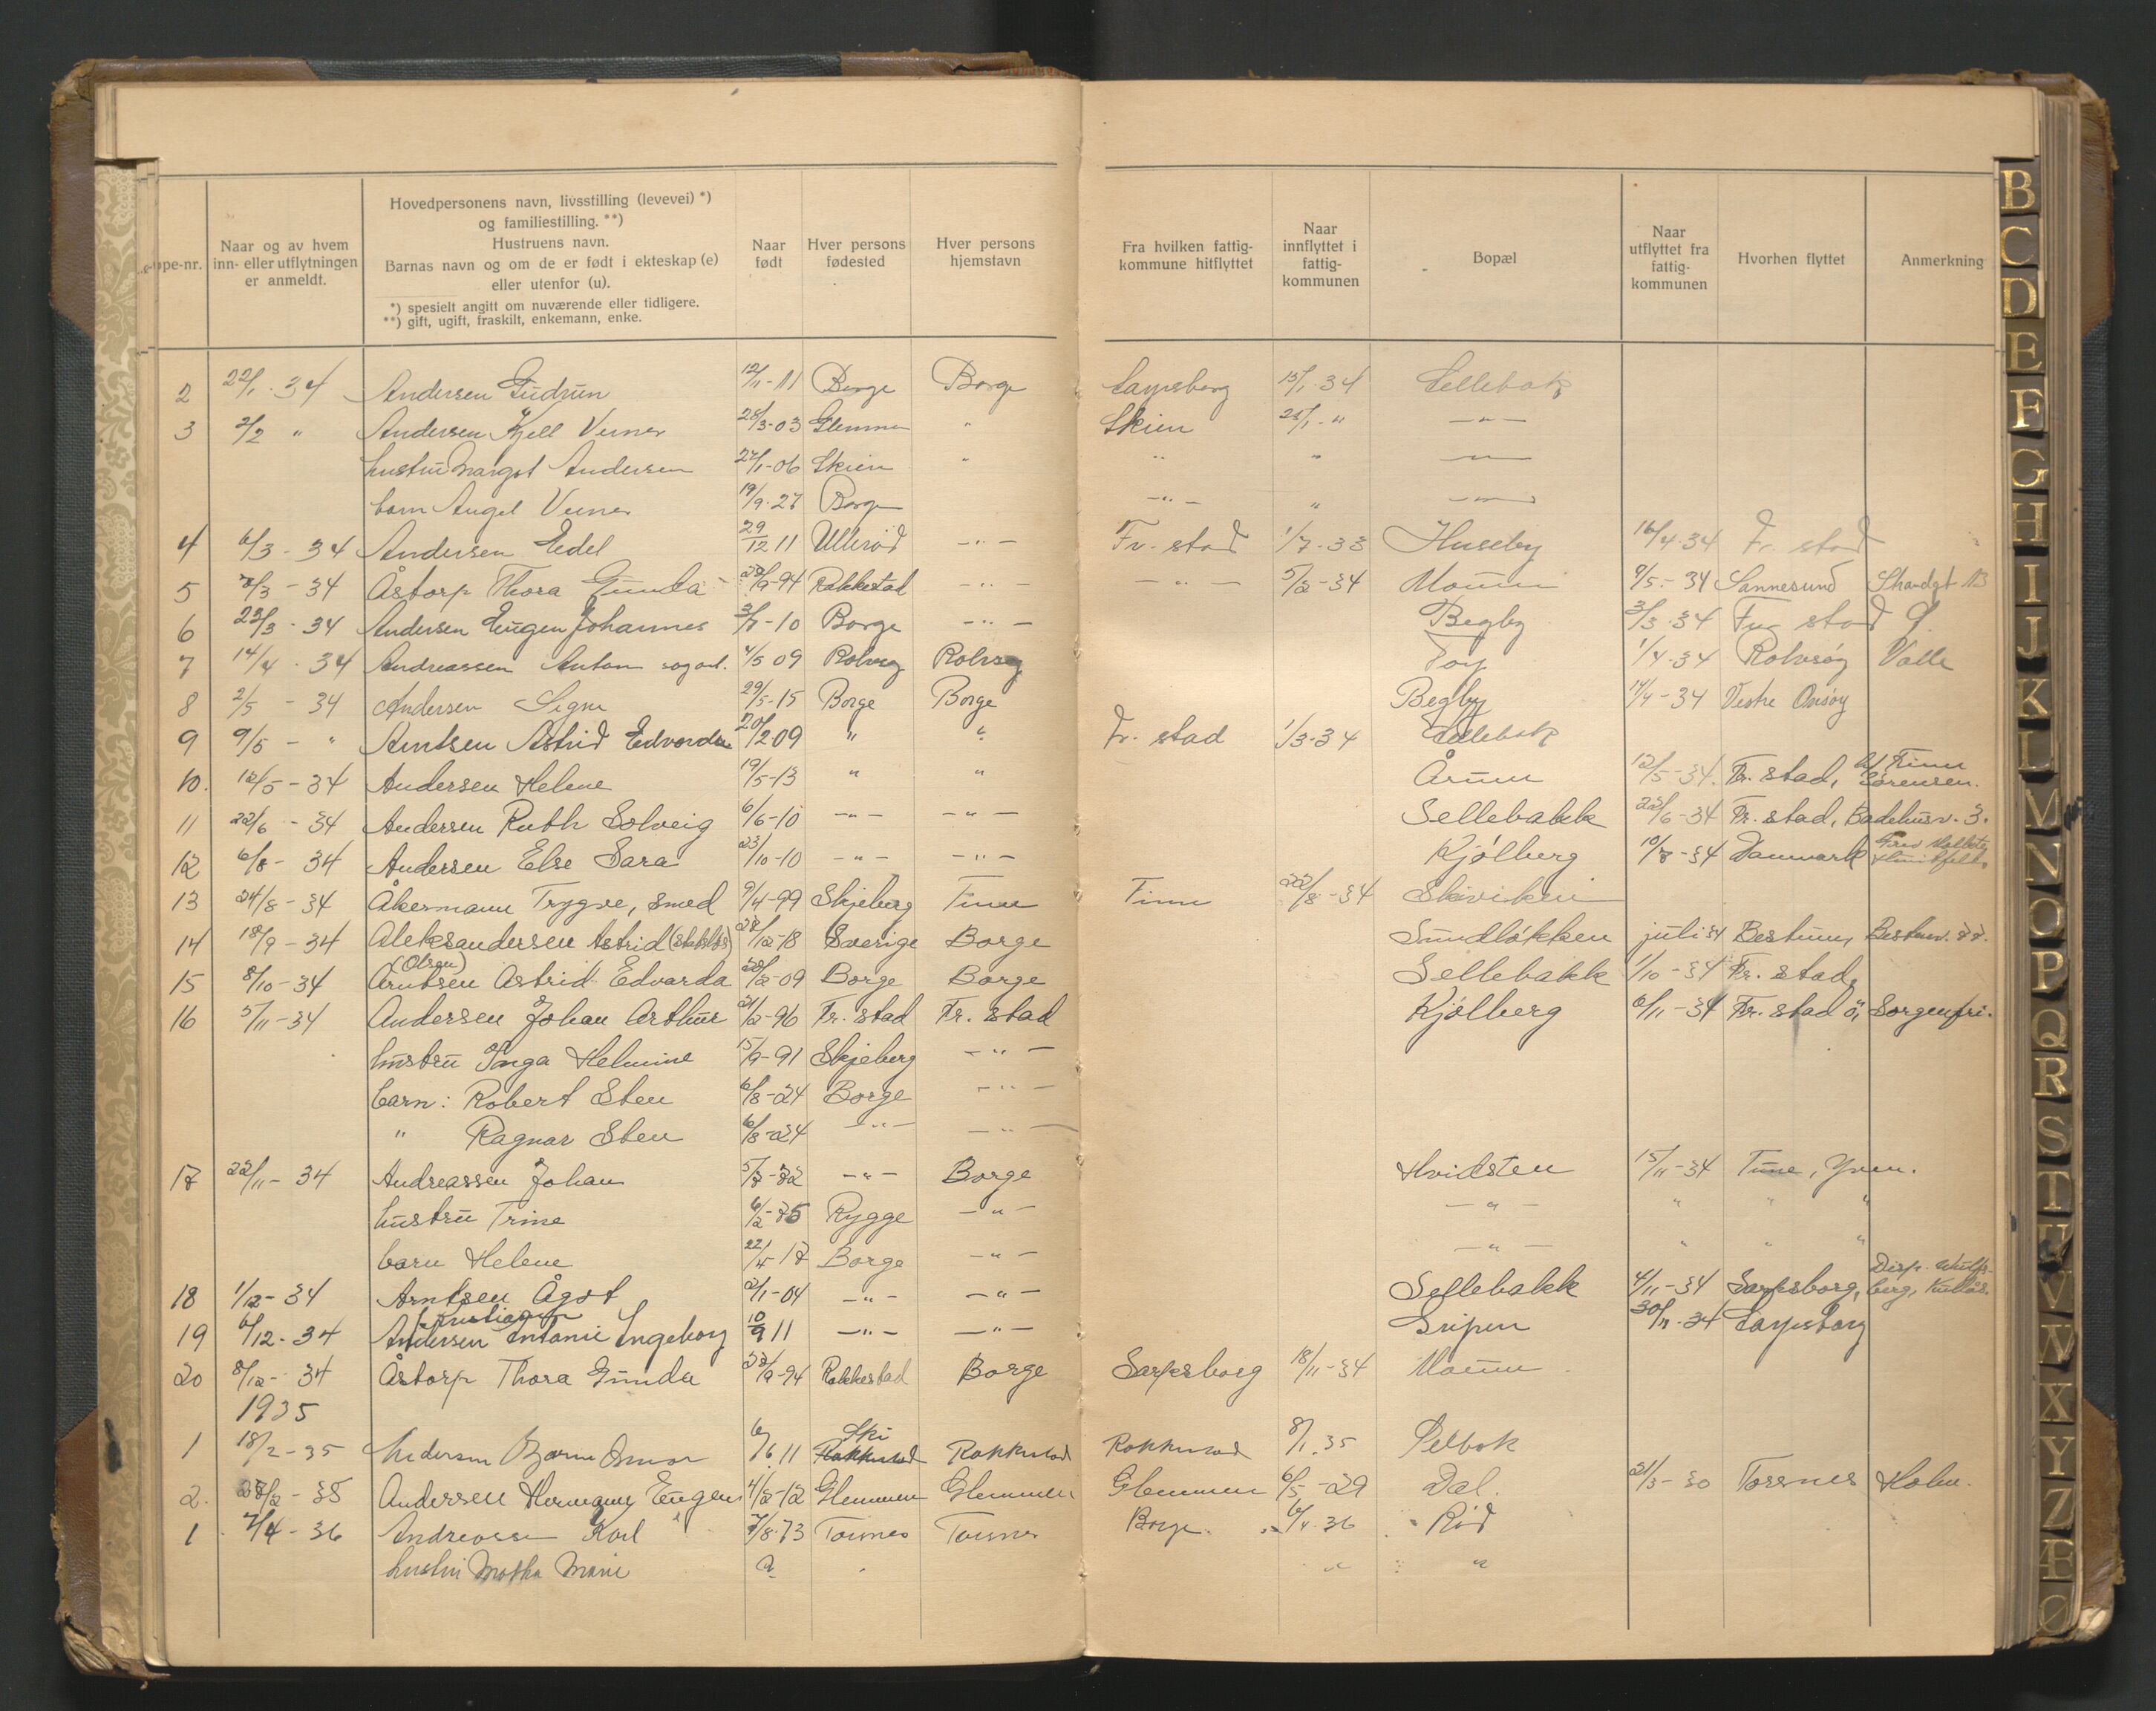 Løpe-nr.
Naar og av hvem inn- eller utflytningen er anmeldt.
Hovedpersonens navn, livsstilling (levevei) *)
og familiestilling. **)
Hustruens navn.
Barnas navn og om de er født i ekteskap (e)
eller utenfor (u).
*) spesielt angitt om nuværende eller tidligere.
**) gift, ugift, fraskilt, enkemann, enke.
Naar født
Hver persons fødested
Hver persons hjemstavn
Fra hvilken fattig-kommune hitflyttet
Naar innflyttet i fattig-kommunen
Bopæl
Naar utflyttet fra fattig-kommunen
Hvorhen flyttet
Anmerkning
2 22/1-34 Andersen Gudrun 12/11-11 Borge Borge Sarpsborg 15/1-34 Sellebak
3 2/2 " Andersen Kjell Verner 28/3-03 Glemmen " Skien 25/1-" -"-
hustru Margot Andersen 27/1-06 Skien " " " -"-
barn Angel Verner 19/9-27 Borge -"- " -"-
4 6/3-34 Andersen Edel 29/12 11 Ullerød -"- Fr.stad 1/7-33 Huseby 16/4-34 Fr.stad
5 7/3-34 Åstorp Thora Gunda 28/9-94 Rakkestad -"- -"- 5/2-34 Moum 9/5-34 Sannesund Strandgt 113
6 23/3-34 Andersen Eugen Johannes 3/7-10 Borge -"- Begby 3/3-34 Fr. stad
7 14/4-34 Andreassen Anton 4/5 09 Rolvsøy Rolvsøy Torp 1/4-34 Rolvsøy Valle
8 2/5-34 Andersen Signe 29/5-15 Borge Borge Begby 14/4-34 Vestre Onsøy
9 9/5-" Arntsen Astrid Edvarda 20/2-09 " " Fr. stad 1/3-34 Sellebak
10. 12/5-34 Andersen Helene 19/5-13 " " Årum 12/5-34. Fr. stad, Finn Sørensen.
11 22/6-34 Andersen Ruth Solveig 6/6-10 -"- -"- Sellebakk 22/6-34 Fr. stad, Badehusv. 3.
12 6/8-34 Andersen Else Sara 23/10-10 -"- -"- Kjølberg 10/8-34 Danmark
13 24/8-34 Åkermann Trygve, smed 9/4-99 Skjeberg Tune Tune 22/8-34 Skiviken
14 18/9-34 Aleksandersen Astrid (statsløs) 28/12-18 Sverige Borge Sundløkken juli 34 Bestum, Bestumv. 77.
15 8/10-34 Arntsen (Olsen) Astrid Edvarda 20/2-09 Borge Borge Sellebakk 1/10-34 Fr. stad,
16 5/11-34 Andersen Johan Arthur 21/2-96 Fr. stad Fr. stad Kjølberg 6/11-34 Fr. stad ö, Sorgenfri.
hustru Inga Helmine 15/9-91 Skjeberg -"-
barn: Robert Sten 6/8-24 Borge -"-
" Ragnar Sten 6/8-24 -"- -"-
17 22/11-34 Andreassen Johan 5/7-72 -"- Borge Hvidsten 15/11-34 Tune, Yven.
hustru Trine 6/2-75 Rygge -"- -"- " " "
barn Helene 22/4-17 Borge -"- -"- " " "
18 1/12-34 Arntsen Ågot 2/1-04 -"- -"- Sellebakk 4/11-34 Sarpsborg, Disp. Wulfsberg, Kullås.
19 6/12-34 Andersen Kristiansen Antonie Ingeborg 10/9 11 -"- -"- Gripen 30/11-34 Sarpsborg
20 8/12-34 Åstorp Thora Gunda 28/9-94 Rakkestad Borge Sarpsborg 18/11-34 Moum
1935
1 18/2-35 Andersen Bjarne 6/6 11 Ski Rakkestad Rakkestad Rakkestad 8/1.35 Selbak
2. 28/2-35 Andersen Hermann Eugen 4/2-12 Glemmen Glemmen Glemmen 6/5-29 Dal. 21/3-30 Torsnes Holm.
1 7/4-36 Andreassen Karl 7/8-73 Torsnes Torsnes Borge 6/4.36 Rød
hustru Martha Marie " "
B
C
D
E
F
G
H
I
J
K
L
M
N
O
P
Q
R
S
T
U
V
W
X
Y
Z
Æ
Ø